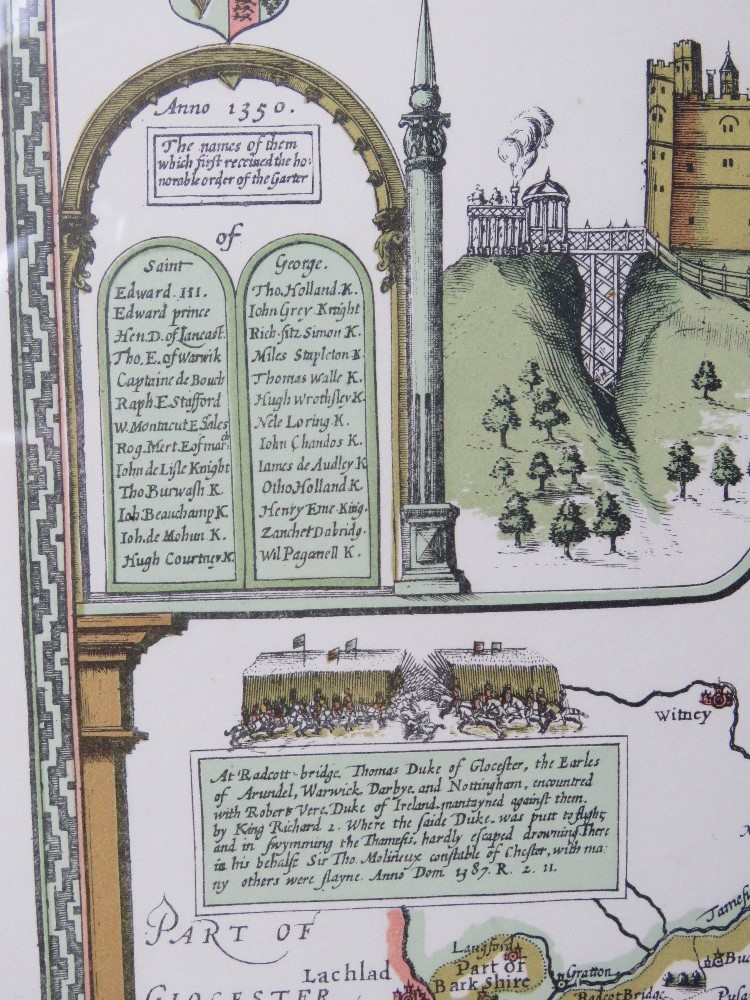 Anno 1350.
The names of them
which first received the ho:
norable order of the Garter
of
Saint
Edward III.
Edward prince
Hen. D. of Lancast.
Tho. E. of Warwik
Captaine de Bouch
Raph E. Stafford
W. Montacut E. Sales
Rog. Mert. E of mar ch
Iohn de Lisle Knight
Tho. Burwash K.
Ioh. Beauchamp K.
Ioh. de Mohun K.
Hugh Courtney K.
George.
Tho. Holland K.
Iohn Grey Knight
Rich. fitz Simon K.
Miles Stapleton K
Thomas Walle K.
Hugh Wrothsley K.
Nele Loring K.
Iohn Chandos K.
Iames de Audley K
Otho Holland K.
Henry Eme King.
Zanchet Dabridg.
Wil Paganell K.
Witney
At Radcott-bridge, Thomas Duke of Glocester, the Earles
of Arundel, Warwick Darbye, and Nottingham, encountred
with Robert Vere, Duke of Ireland, mantayned against them,
by King Richard 2. Where the saide Duke, was putt to flight,
and in swymming the Thamesis, hardly escaped drowning. There
in his behalfe Sir Tho. Molineux constable of Chester, with ma:
ny others were slayne. Anno Dom 1387. R. 2. 11.
PART OF
GLOCESTER
Lachlad
Langford
Part of
Bark Shire
Gratton
Radcot Bridge